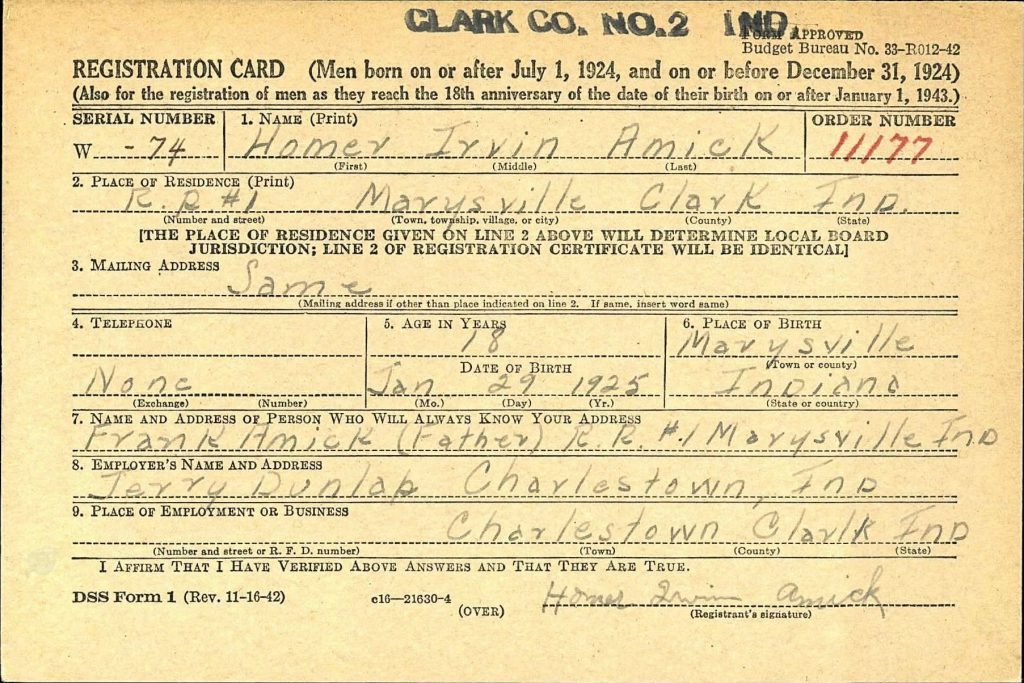 CLARK CO. NO. 2 IND.
FORM APPROVED
Budget Bureau No. 33-R012-42
REGISTRATION CARD (Men born on or after July 1, 1924, and on or before December 31, 1924)
(Also for the registration of men as they reach the 18th anniversary of the date of their birth on or after January 1, 1943.)
SERIAL NUMBER 1. NAME (Print) ORDER NUMBER
W -74 Homer Irvin Amick 11177
(First) (Middle) (Last)
2. PLACE OF RESIDENCE (Print)
R.R #1 Marysville Clark Ind.
(Number and street) (Town, township, village, or city) (County) (State)
[THE PLACE OF RESIDENCE GIVEN ON LINE 2 ABOVE WILL DETERMINE LOCAL BOARD
JURISDICTION; LINE 2 OF REGISTRATION CERTIFICATE WILL BE IDENTICAL]
3. MAILING ADDRESS
Same
(Mailing address if other than place indicated on line 2. If same, insert word same)
4. TELEPHONE 5. AGE IN YEARS 6. PLACE OF BIRTH
18 Marysville
DATE OF BIRTH (Town or county)
None Jan 29 1925 Indiana
(Exchange) (Number) (Mo.) (Day) (Yr.) (State or country)
7. NAME AND ADDRESS OF PERSON WHO WILL ALWAYS KNOW YOUR ADDRESS
Frank Amick (Father) R.R. #1 Marysville Ind
8. EMPLOYER'S NAME AND ADDRESS
Jerry Dunlap Charlestown, Ind
9. PLACE OF EMPLOYMENT OR BUSINESS
Charlestown Clark Ind
(Number and street or R. F. D. number) (Town) (County) (State)
I AFFIRM THAT I HAVE VERIFIED ABOVE ANSWERS AND THAT THEY ARE TRUE.
DSS Form 1 (Rev. 11-16-42) c16—21630-4 (OVER) Homer Irvin Amick
(Registrant's signature)